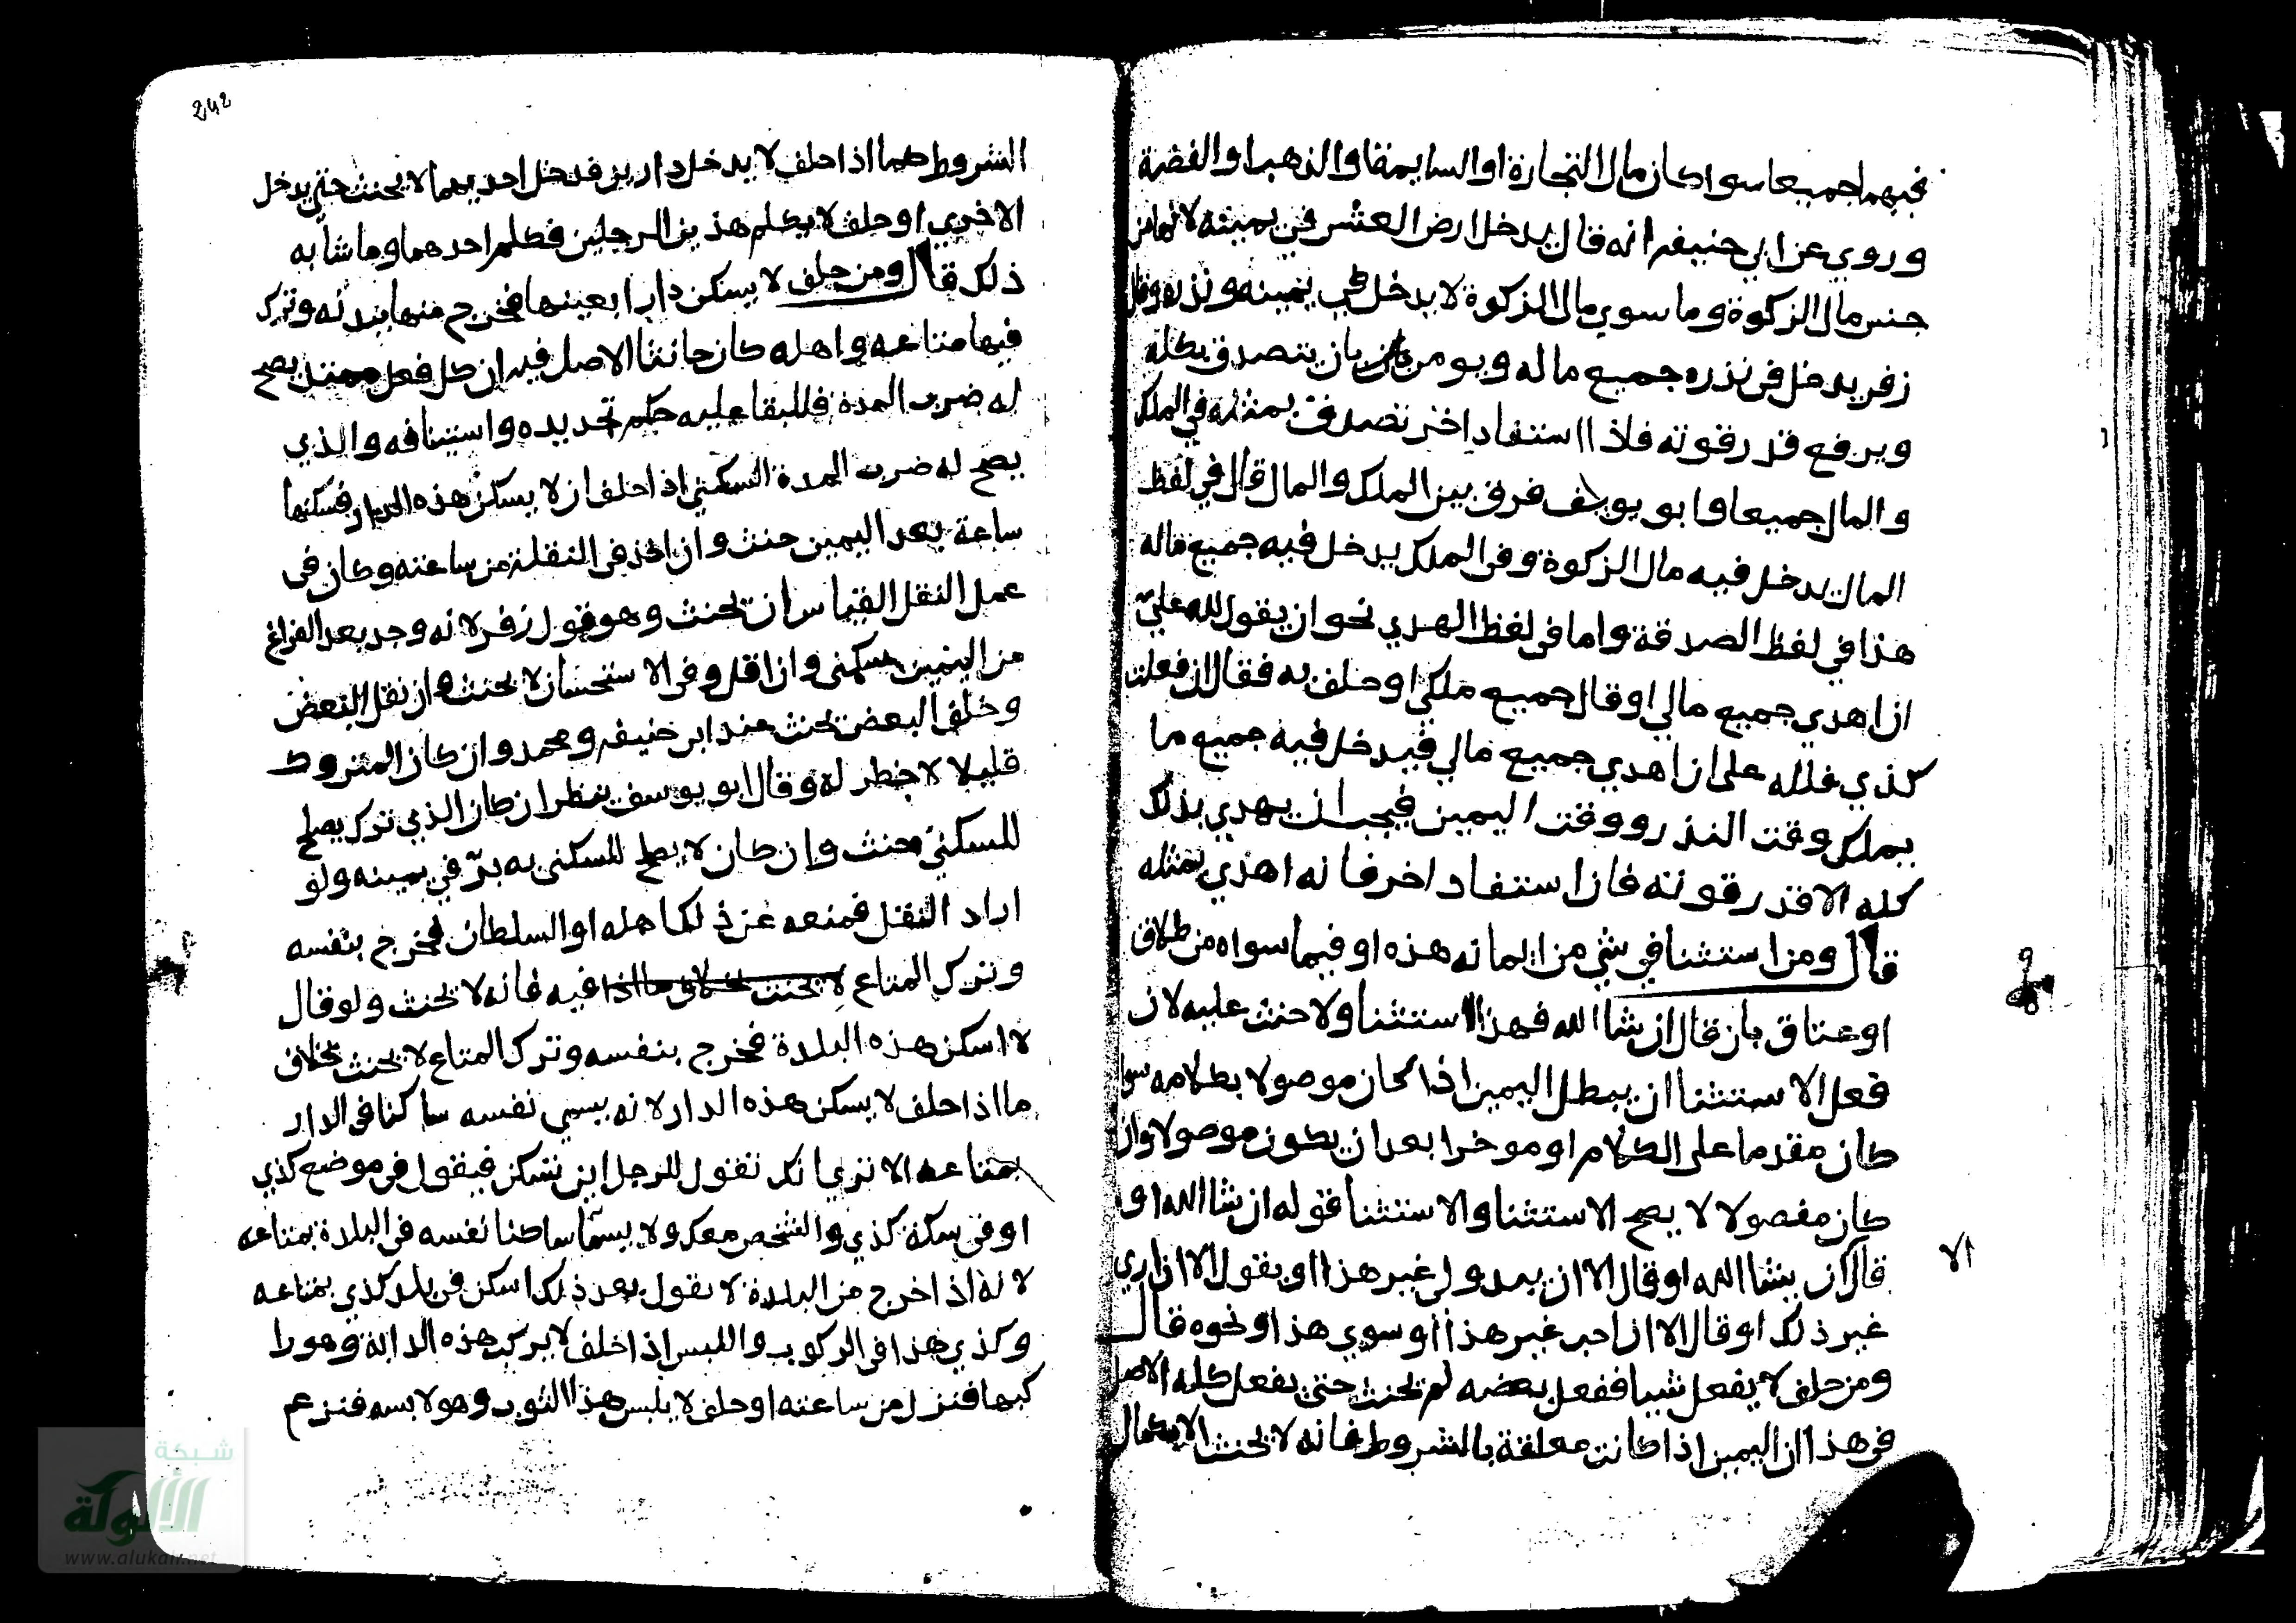 فيهما جميعا سوا كان مال التجارة او السايمة او الذهب او الفضة
وروي عن ابي حنيفه انه قال يدخل ارض العشر في يمينه لانها من
جنس مال الزكوة وما سوي مال الزكوة لا يدخل في يمينه ونذره وقال
زفر يدخل في نذره جميع ماله ويومر بان يتصدق بكله
ويرفع قدر قوته فاذا استفاد اخر تصدق بمثله في الملك
والمال جميعا وابو يوسف فرق بين الملك والمال قال في لفظ
المال يدخل فيه مال الزكوة وفي الملك يدخل فيه جميع ماله
هذا في لفظ الصدقة واما في لفظ الهدي نحو ان يقول لله علي
ان اهدي جميع مالي او قال جميع ملكي او حلف به فقال ان فعلت
كذي فلله علي ان اهدي جميع مالي فيدخل فيه جميع ما
يملك وقت النذر ووقت اليمين فيجب ان يهدي بذلك
كله الا قدر قوته فاذا استفاد اخر فانه اهدي بمثله
قال ومن استثنا في شي من ايمانه هذه او فيما سواه من طلاق
او عتاق بان قال ان شا الله فهذا استثنا ولا حنث عليه لان
فعل الاستثنا ان يبطل اليمين اذا كان موصولا بكلامه سوا
كان مقدما علي الكلام او موخرا بعد ان يكون موصولا وان
كان مفصولا لا يصح الاستثنا والاستثنا قوله ان شا الله او
الا
قال ان يشا الله او قال الا ان يبدو لي غير هذا او يقول الا ان اري
غير ذلك او قال الا ان احب غير هذا او سوي هذا او نحوه قال
ومن حلف لا يفعل شيا ففعل بعضه لم يحنث حتي يفعل كله الاصل
في هذا ان اليمين اذا كانت معلقة بالشروط فانه لا يحنث الا بكمال
242
الشروط كما اذا حلف لا يدخل دارين فدخل احديهما لا يحنث حتي يدخل
الاخري او حلف لا يكلم هذين الرجلين فكلم احدهما وما شابه
ذلك قال ومن حلف لا يسكن دارا بعينها فخرج منها ببدنه وترك
فيها متاعه واهله كان حانثا الاصل فيه ان كل فعل ممتد يصح
له ضرب المدة فللبقا عليه حكم تجديده واستينافه والذي
يصح له ضرب المدة السكني اذا حلف ان لا يسكن هذه الدار فسكنها
ساعة بعد اليمين حنث وان اخذ في النقلة من ساعته وكان في
عمل النقل القياس ان يحنث وهو قول زفر لانه وجد بعد الفراغ
من اليمين سكني وان اقل وفي الاستحسان لا يحنث وان نقل البعض
وخلف البعض يحنث عند ابي حنيفه ومحمد وان كان المتروك
قليلا لا خطر له وقال ابو يوسف ينظر ان كان الذي ترك يصلح
للسكني حنث وان كان لا يصلح للسكني به بر في يمينه ولو
اراد النقل فمنعه عن ذلك اهله او السلطان فخرج بنفسه
وترك المتاع لا يحنث بخلاف ما اذا فيه فانه لا يحنث ولو قال
لا اسكن هذه البلدة فخرج بنفسه وترك المتاع لا يحنث بخلاف
ما اذا حلف لا يسكن هذه الدار لانه يسمي نفسه ساكنا في الدار
بمتاعه الا تري انك تقول للرجل اين تسكن فيقول في موضع كذي
او في سكة كذي والشخص معك ولا يسما ساكنا نفسه في البلدة بمتاعه
لانه اذا خرج من البلدة لا يقول بعد ذلك اسكن في بلد كذي بمتاعه
وكذي هذا في الركوب واللبس اذا حلف لا يركب هذه الدابة وهو را
كبها فنزل من ساعته او حلف لا يلبس هذا الثوب وهو لابسه فنزعه
شبكة
الألوكة
www.alukah.net